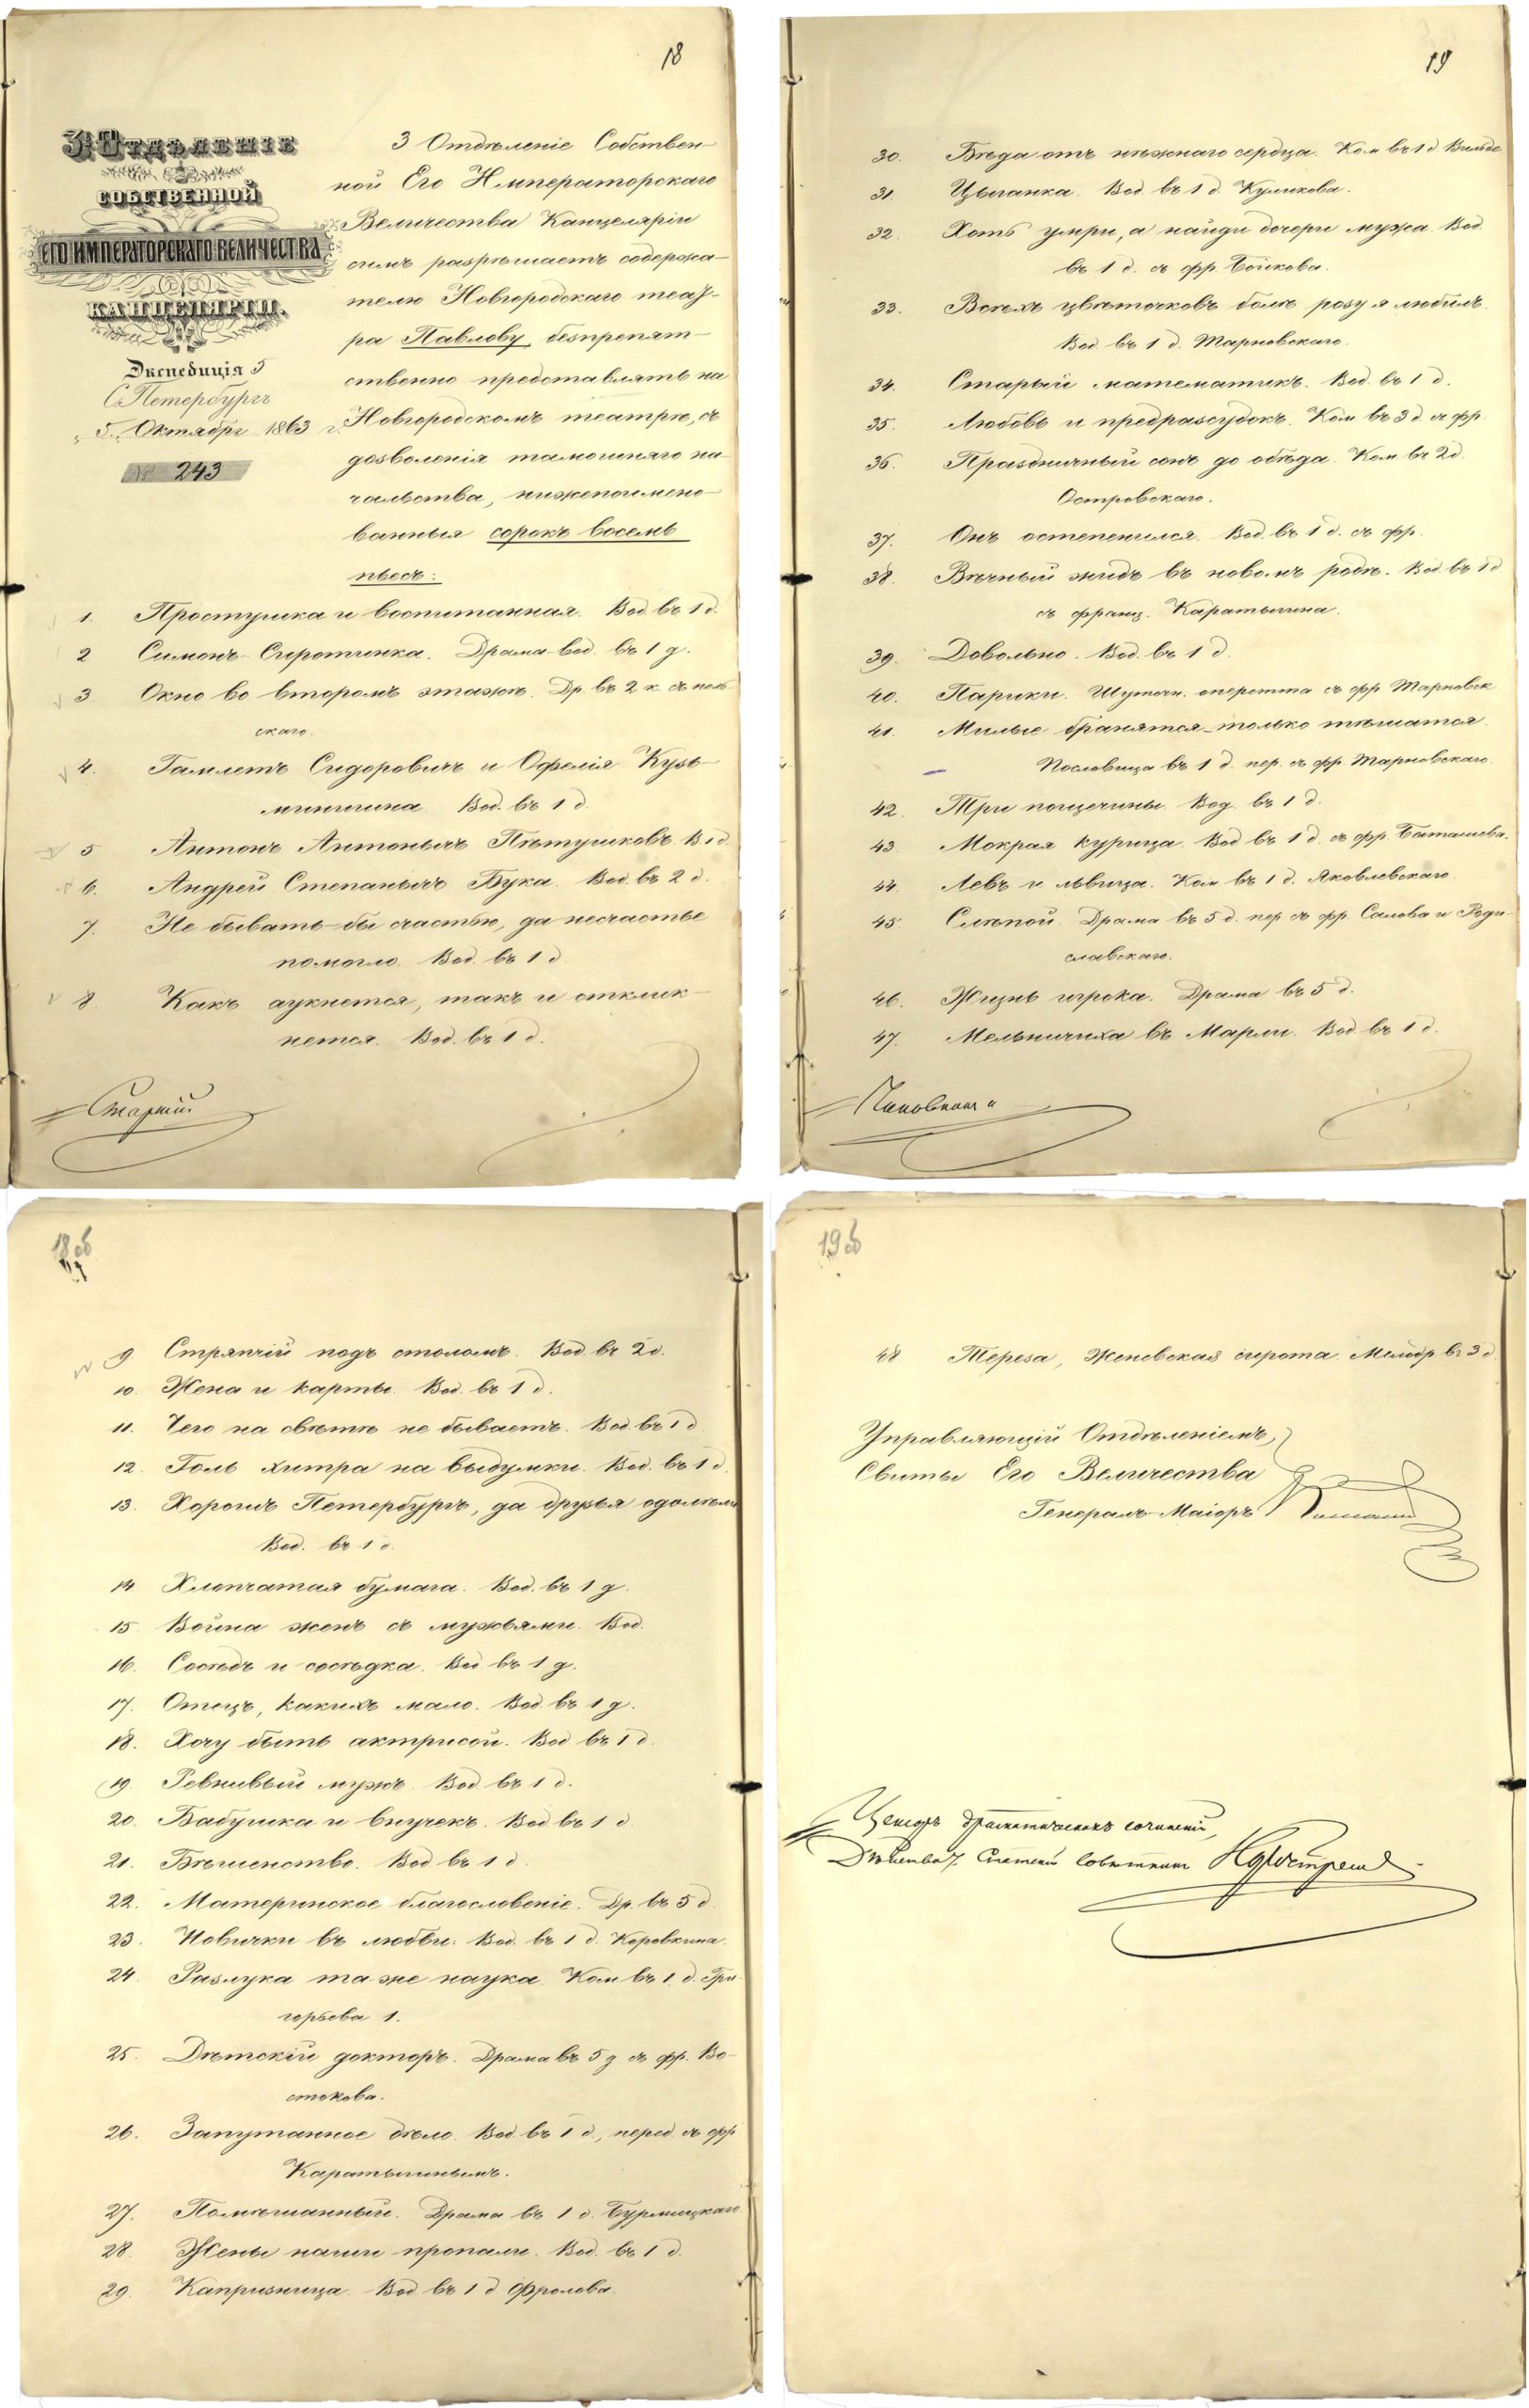 18
3 Отдѣленіе
СОБСТВЕННОЙ
ЕГО ИМПЕРАТОРСКАГО ВЕЛИЧЕСТВА
КАНЦЕЛЯРІИ.
Экспедиція 5
С. Петербургъ
5 Октября 1863 г.
№ 243
3 Отдѣленіе Собствен-
ной Его Императорскаго
Величества Канцеляріи
симъ разрѣшаетъ содержа-
телю Новгородскаго теат-
ра Павлову, безпрепят-
ственно представлять на
Новгородскомъ театрѣ, съ
дозволенія тамошняго на-
чальства, нижепоимено-
ванныя сорокъ восемь
пьесъ:
1. Простушка и воспитанная. Вод. въ 1 д.
2 Симонъ-Сиротинка. Драма-вод. въ 1 д.
3 Окно во второмъ этажѣ. Др. въ 2 к. съ поль-
скаго.
4. Гамлетъ Сидоровичъ и Офелія Кузь-
минишна Вод. въ 1 д.
5 Антонъ Антонычъ Пѣтушковъ. В. 1 д.
6. Андрей Степанычъ Бука. Вод. въ 2 д.
7. Не бывать-бы счастью, да несчастье
помогло. Вод. въ 1 д.
8. Какъ аукнется, такъ и отклик-
нется. Вод. въ 1 д.
Старшій
18 об
9 Стряпчій подъ столомъ. Вод. въ 2 д.
10. Жена и карты. Вод. въ 1 д.
11. Чего на свѣтѣ не бываетъ. Вод. въ 1 д
12. Голь хитра на выдумки. Вод. въ 1 д.
13. Хорошъ Петербургъ, да друзья одолѣли
Вод. въ 1 д.
14 Хлопчатая бумага. Вод. въ 1 д.
15 Война женъ съ мужьями. Вод.
16. Сосѣдъ и сосѣдка. Вод въ 1 д.
17. Отецъ, какихъ мало. Вод. въ 1 д.
18. Хочу быть актрисой. Вод въ 1 д.
19 Ревнивый мужъ. Вод въ 1 д.
20. Бабушка и внучекъ. Вод въ 1 д
21. Бѣшенство. Вод въ 1 д.
22. Материнское благословеніе. Др. въ 5 д.
23. Новички въ любви. Вод. въ 1 д. Коровкина.
24. Разлука та же наука. Ком въ 1. д. Гри-
горьева 1.
25. Дѣтскій докторъ. Драма въ 5 д съ фр. Во-
стокова.
26. Запутанное дѣло. Вод въ 1 д., перед. съ фр
Каратыгинымъ.
27. Помѣшанный. Драма въ 1 д. Бурмицкаго
28. Жены наши пропали. Вод. въ 1 д.
29. Капризница. Вод въ 1 д Фролова.
19
30. Бѣда отъ нѣжнаго сердца. Ком въ 1 д
31 Цыганка. Вод въ 1 д. Куликова.
32. Хоть умри, а найди дочери мужа. Вод.
въ 1 д. съ фр. Бойкова.
33. Всѣхъ цвѣточковъ болѣ розу я любилъ.
Вод. въ 1 д. Тарновскаго.
34. Старый математикъ. Вод. въ 1 д.
35. Любовь и предразсудокъ. Ком въ 3 д. съ фр.
36. Праздничный сонъ до обѣда. Ком въ 2 д.
Островскаго.
37. Онъ остепенился. Вод. въ 1 д. съ фр.
38. Вѣчный жидъ въ новомъ родѣ. Вод въ 1 д
съ франц. Каратыгина.
39. Довольно. Вод. въ 1 д.
40. Парики. Шуточн. оперетта съ фр Тарновск
41. Милые бранятся-только тѣшатся.
Пословица въ 1 д. пер. съ фр. Тарновскаго.
42. Три пощечины. Вод. въ 1 д.
43. Мокрая курица. Вод въ 1 д. съ фр. Баташева.
44. Левъ и львица. Ком въ 1 д. Яковлевскаго
45. Слѣпой. Драма въ 5 д. пер. съ фр. Салова и Роди-
славскаго.
46. Жизнь игрока. Драма въ 5 д.
47. Мельничиха въ Марли. Вод въ 1 д.
Чиновникъ
19 об
48 Тереза, Женевская сирота. Мелодр. въ 3 д.
Управляющій Отдѣленіемъ,
Свиты Его Величества
Генералъ-Маіоръ
Цензоръ драматическихъ сочиненій,
Дѣйствит. Статскій Совѣтникъ Нордстремъ